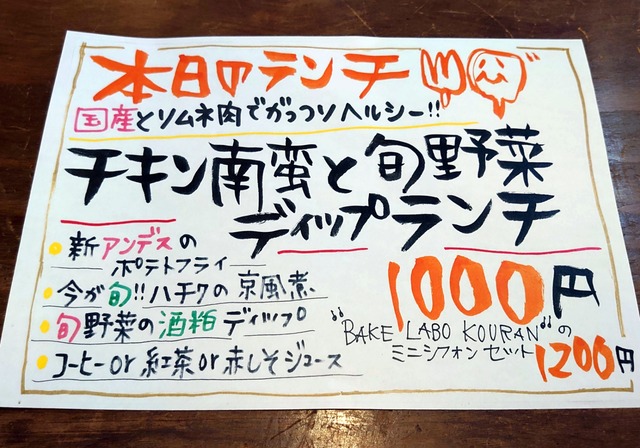 本日のランチ
国産とりムネ肉でがっつりヘルシー!!
チキン南蛮と旬野菜
ディップランチ
新アンデスの
ポテトフライ
今が旬!!ハチクの京風煮
旬野菜の酒粕ディップ
コーヒーor紅茶or赤しそジュース
1000円
"BAKE LABO KOURAN"の
ミニシフォンセット1200円